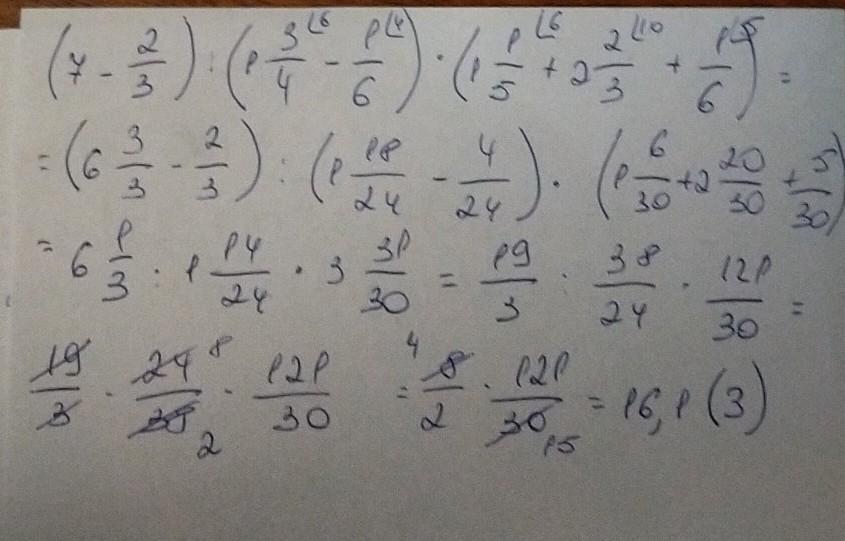 (7 - 2/3) : (1 3/4 ⌊6 - 1/6 ⌊4) · (1 1/5 ⌊6 + 2 2/3 ⌊10 + 1/6 ⌊5) =
= (6 3/3 - 2/3) : (1 18/24 - 4/24) · (1 6/30 + 2 20/30 + 5/30)
= 6 1/3 : 1 14/24 · 3 31/30 = 19/3 : 38/24 · 121/30 =
19/3 · 24/38 8 2 · 121/30 = 4 8/2 · 121/30 15 = 16,1(3)